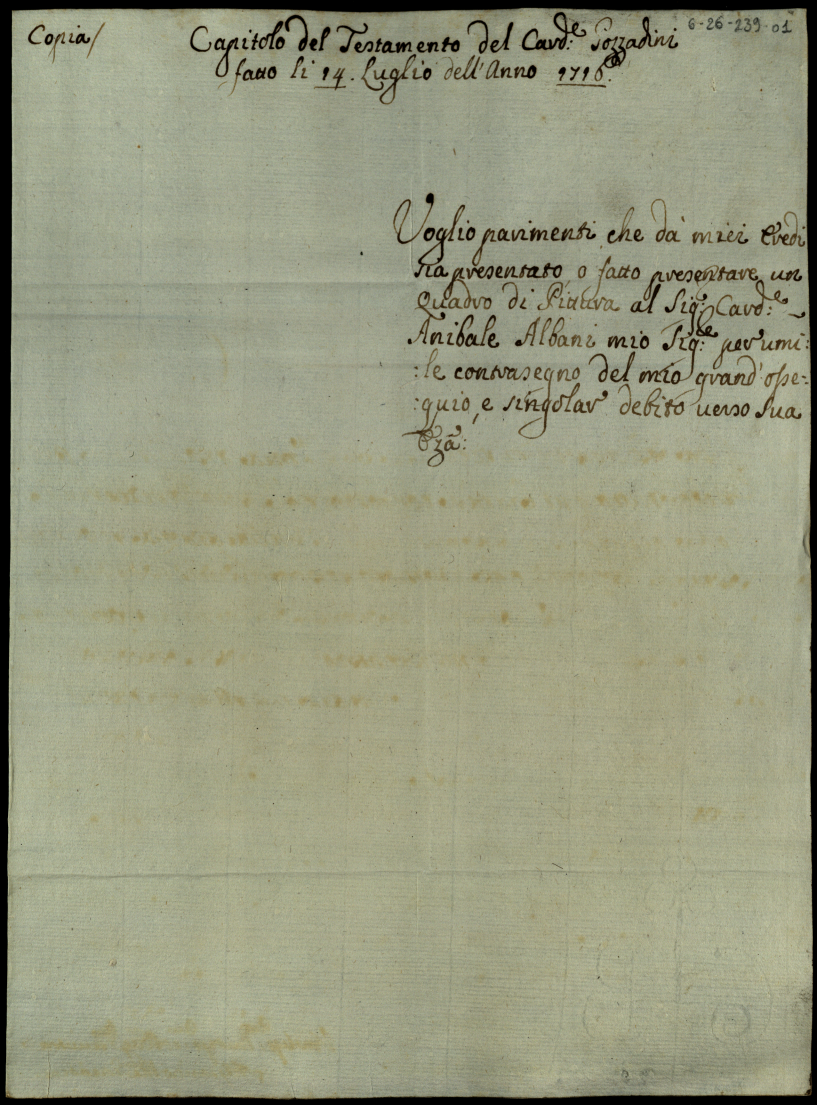 6-26-239-01
Copia/
Capitolo del Testamento del Card:e Gozzadini
fatto li 14. Luglio dell'Anno 1716.
Voglio parimenti che da' miei Eredi
sia presentato, o fatto presentare un
Quadro di Pittura al Sig:r Card:e
Anibale Albani mio Sig:re per umi:
:le contrasegno del mio grand'osse:
:quio, e singolar debito verso Sua
Eza: